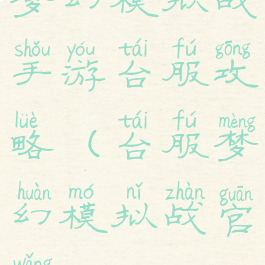 梦幻模拟战
shǒu yóu tái fú gōng
手游台服攻
lüè tái fú mèng
略（台服梦
huàn mó nǐ zhàn guān
幻模拟战官
wǎng